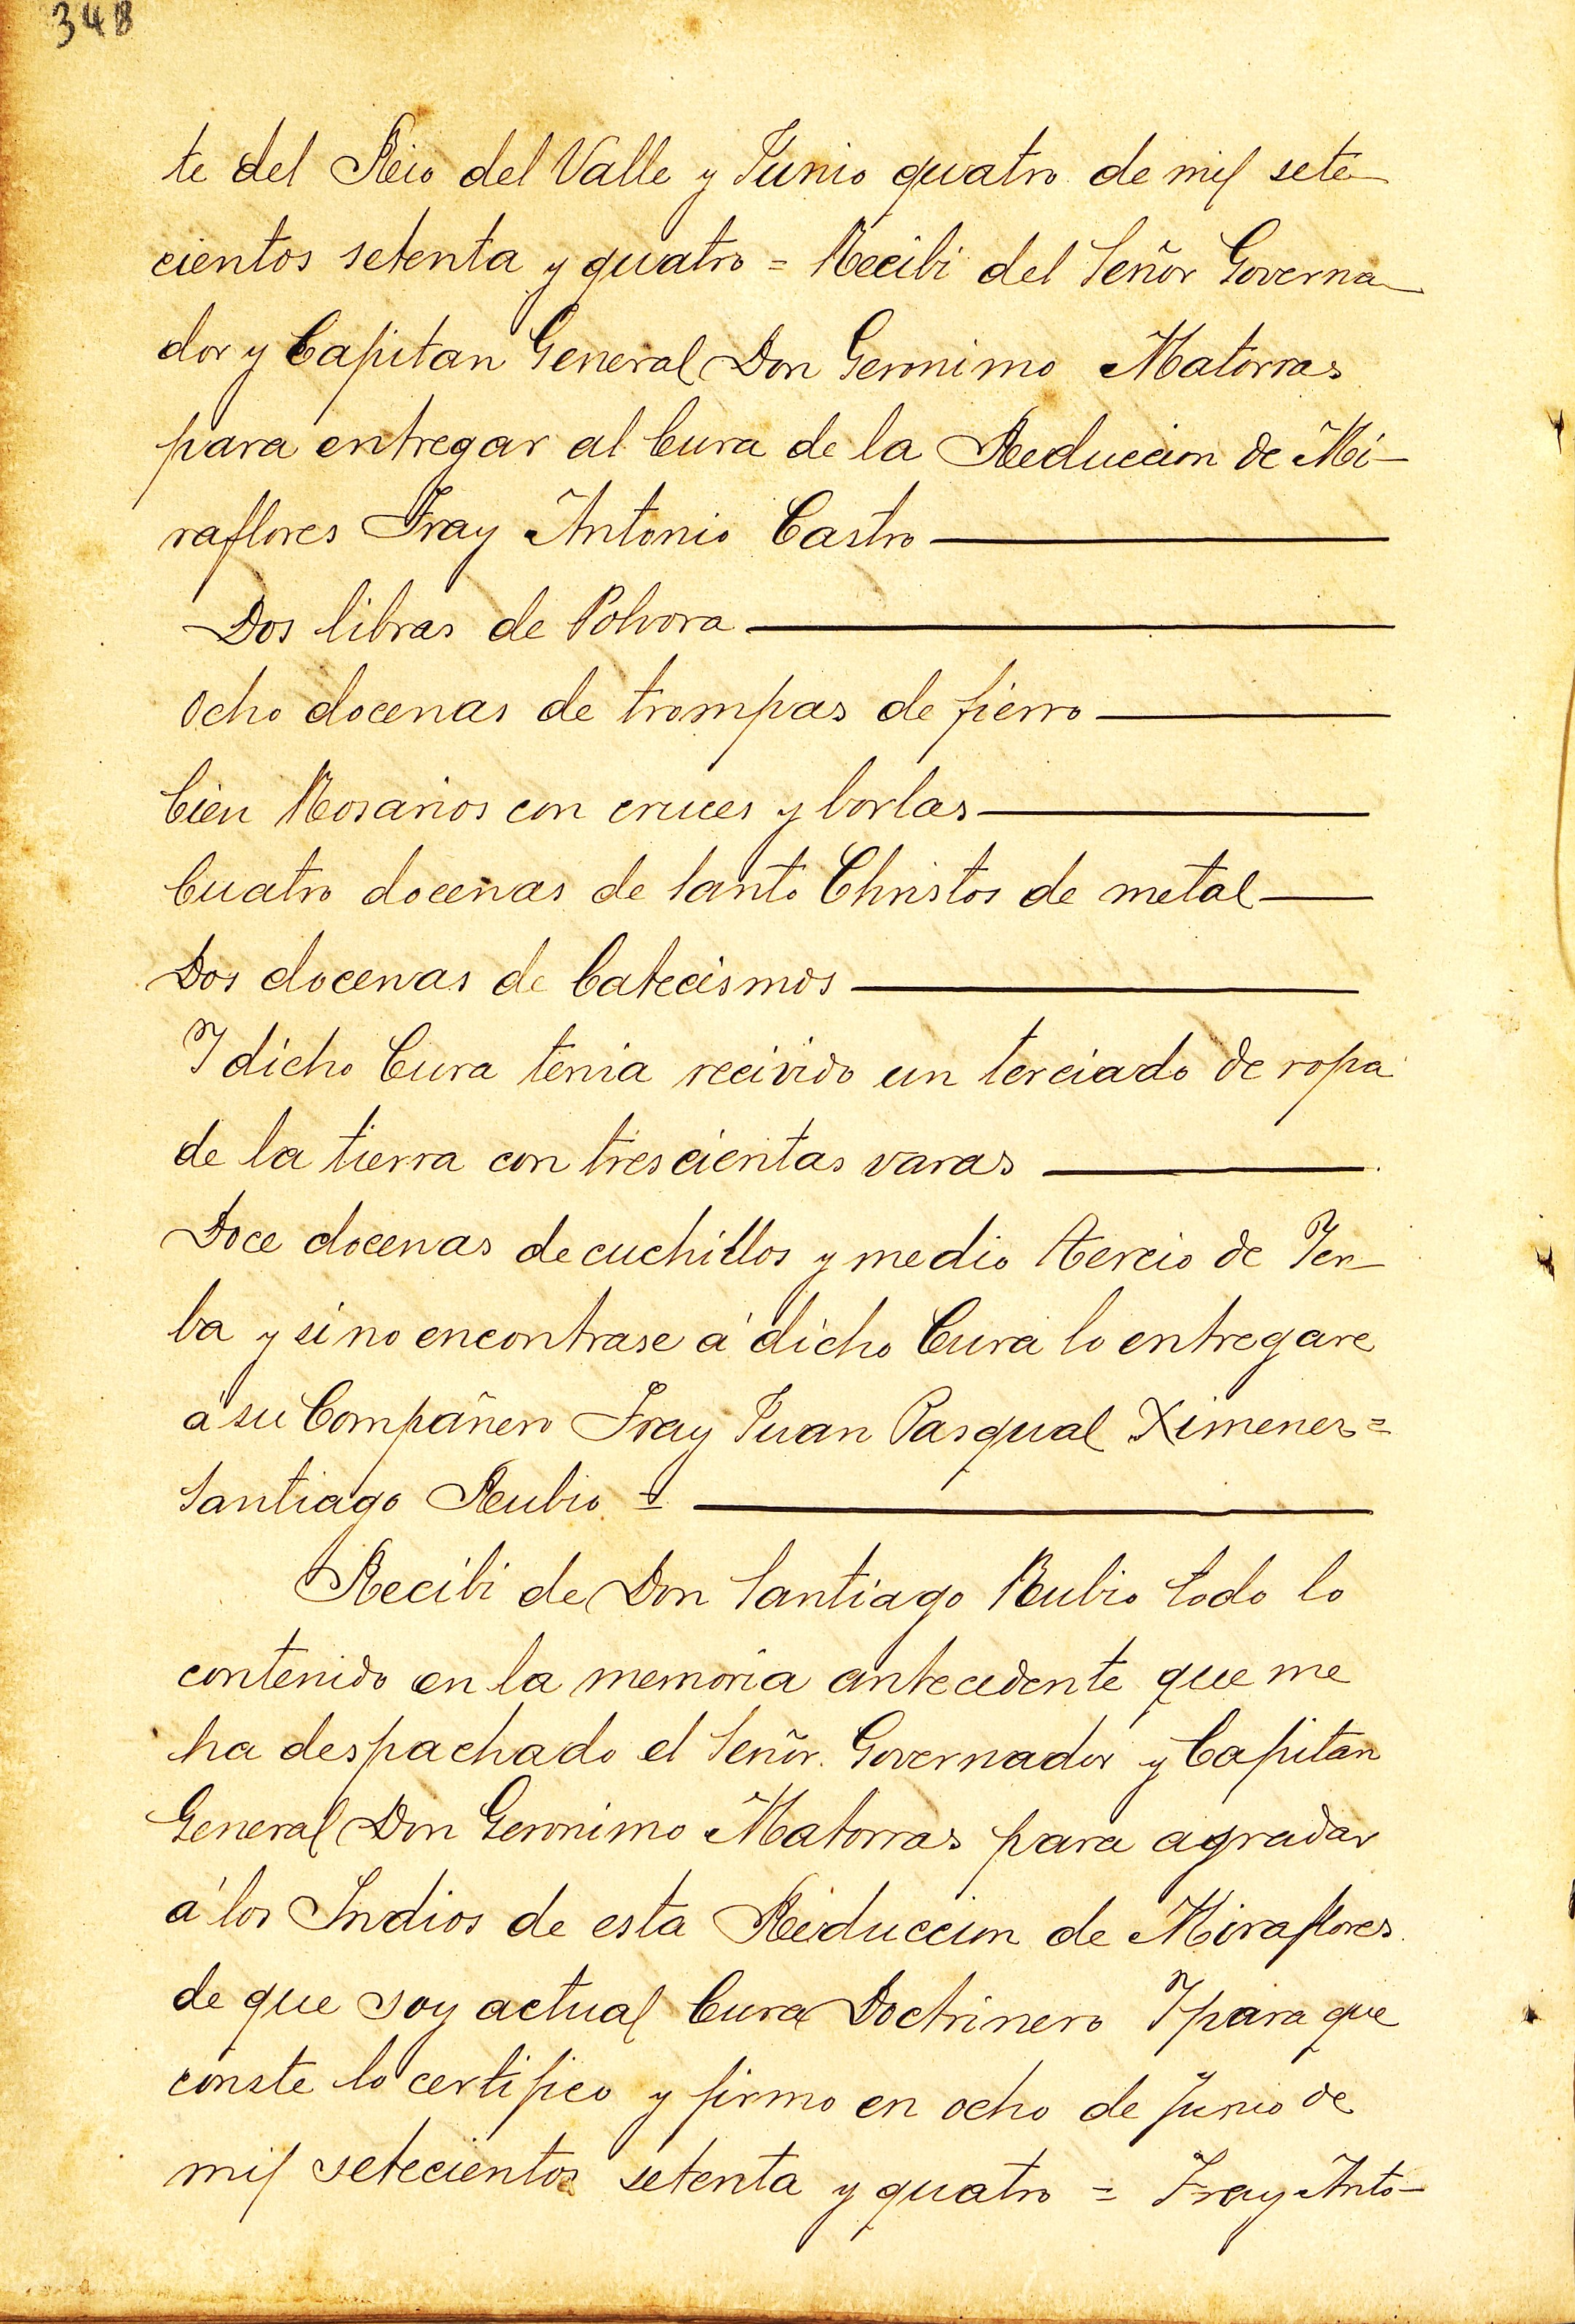 348
te del Reio del Valle y Junio quatro de mil sete-
cientos setenta y quatro = Recibi del Señor Governa-
dor y Capitan General Don Geronimo Matorras
para entregar al Cura de la Reduccion de Mi-
raflores Fray Antonio Castro
Dos libras de Polvora
Ocho docenas de trompas de fierro
Cien Rosarios con cruces y borlas
Cuatro docenas de Santo Christos de metal
Dos docenas de Catecismos
Y dicho Cura tenia recivido un terciado de ropa
de la tierra con trescientas varas
Doce docenas de cuchillos y medio tercio de Yer-
ba y si no encontrase á dicho Cura lo entregare
á su Compañero Fray Juan Pasqual Ximenes =
Santiago Rubio =
Recibi de Don Santiago Rubio todo lo
contenido en la memoria antecedente que me
ha despachado el Señor Governador y Capitan
General Don Geronimo Matorras para agradar
á los Indios de esta Reduccion de Miraflores
de que soy actual Cura Doctrinero Y para que
conste lo certifico y firmo en ocho de Junio de
mil setecientos setenta y quatro = Fray Anto-